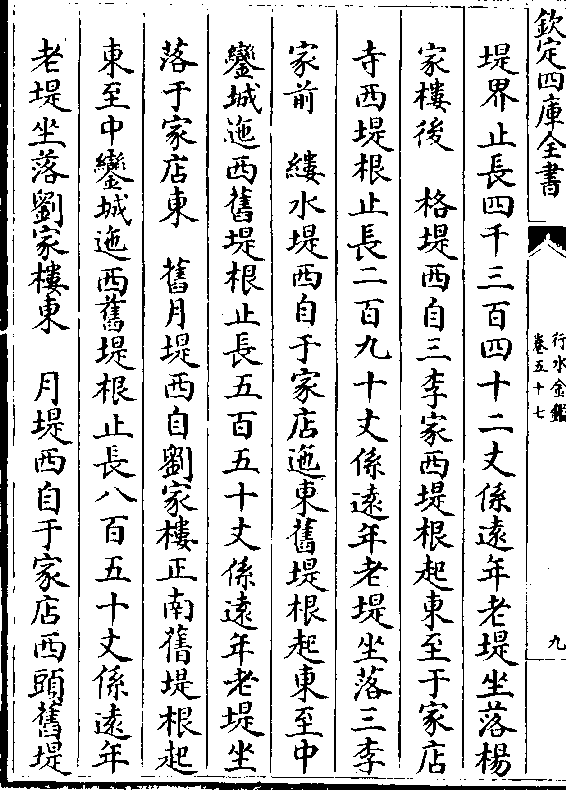 欽定四庫全書
行水金鑑
卷五十七
九
堤界止長四千三百四十二丈係遠年老堤坐落楊
家樓後　格堤西自三李家西堤根起東至于家店
寺西堤根止長二百九十丈係遠年老堤坐落三李
家前　縷水堤西自于家店迤東舊堤根起東至中
鑾城迤西舊堤根止長五百五十丈係遠年老堤坐
落于家店東　舊月堤西自劉家樓正南舊堤根起
東至中鑾城迤西舊堤根止長八百五十丈係遠年
老堤坐落劉家樓東　月堤西自于家店西頭舊堤